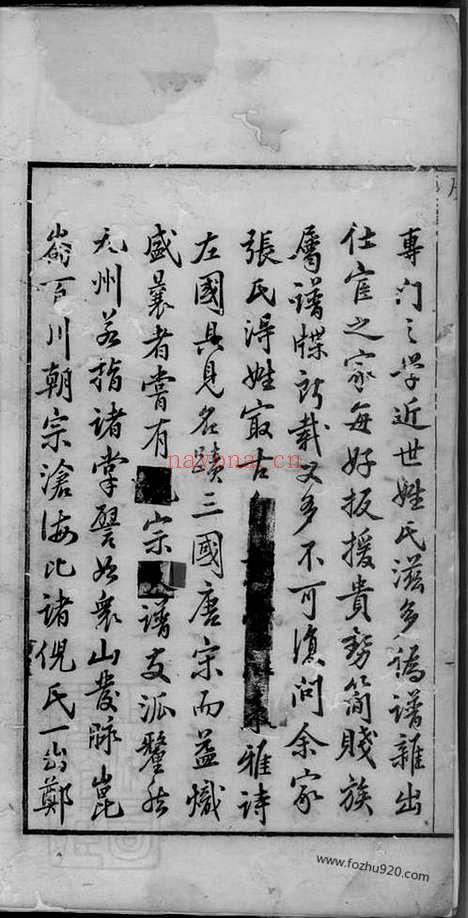 專門之學近世姓氏滋多譌譜雜出
仕宦之家每好扳援貴勢簡賤族
屬譜牒所載又多不可復問余家
張氏得姓寂古雅詩
左國具見名蹟三國唐宋而益熾
盛曩者嘗有宗譜支派釐然
九州若指諸掌譬如衆山發脉崑
崙百川朝宗滄海比諸倪氏一鄭
nayona.cn
www.fozhu920.com